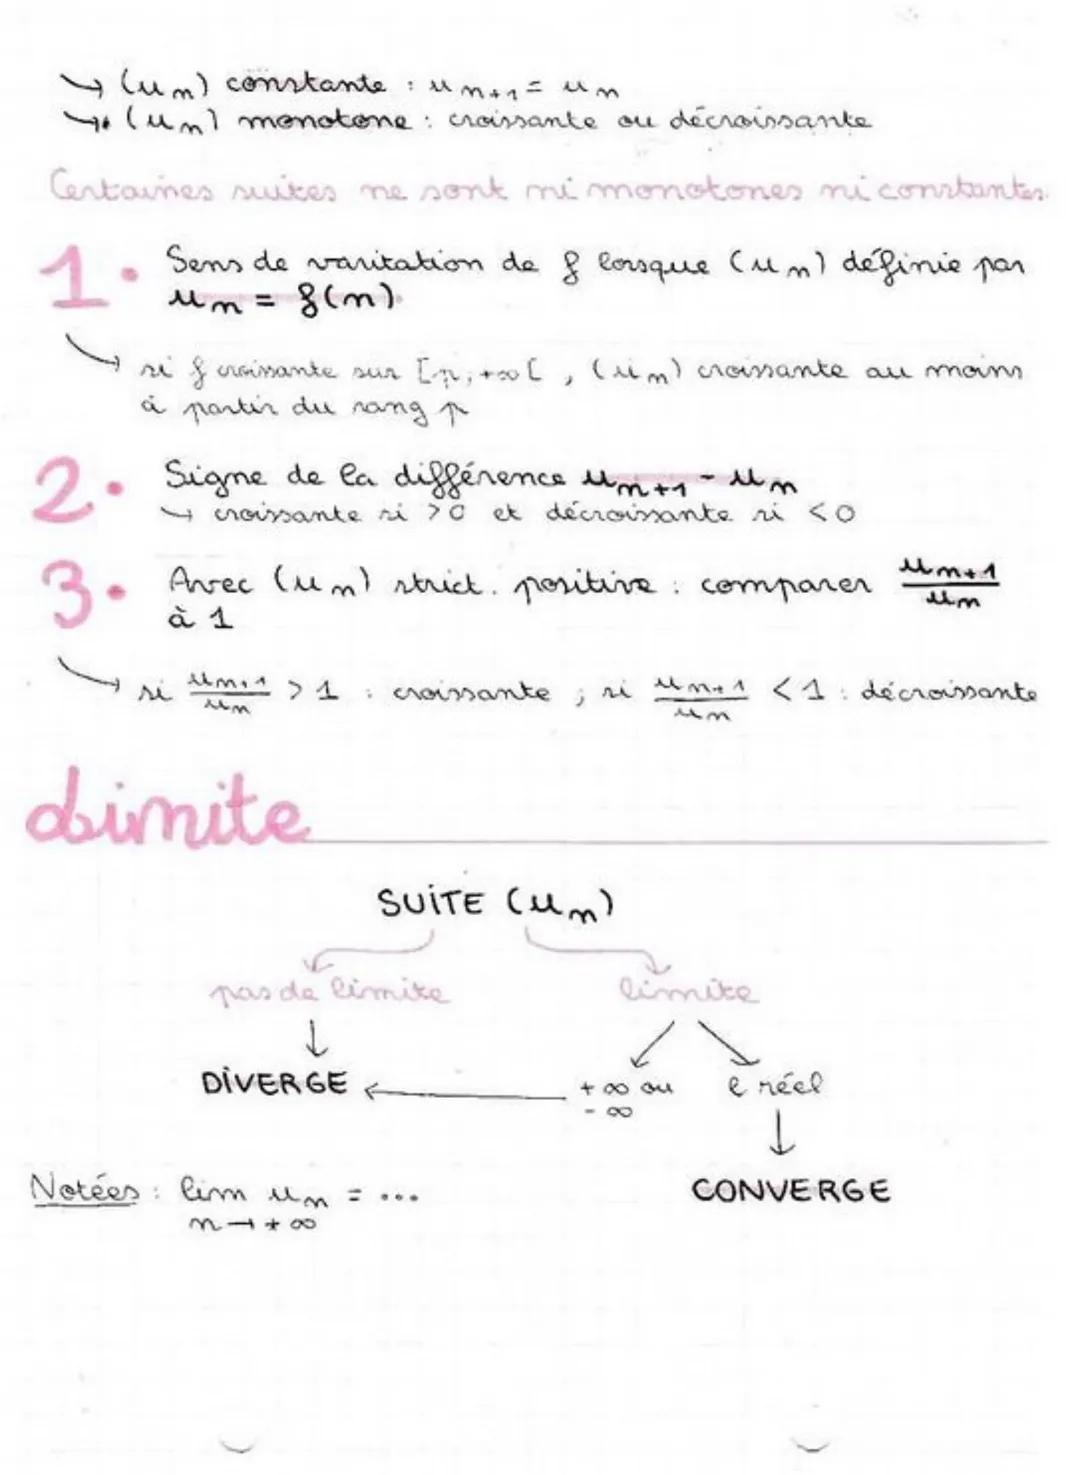 ↳ (un) constante : un+1 = un
↳ (un) monotone : croissante ou décroissante
Certaines suites ne sont ni monotones ni constantes.
1. Sens de varitation de f lorsque (un) définie par
un = f(n).
↳ si f croissante sur [p; +∞[, (un) croissante au moins
à partir du rang p
2. Signe de la différence un+1 - un
↳ croissante si >0 et décroissante si <0
3. Avec (un) strict. positive : comparer un+1/un
à 1
↳ si un+1/un > 1 : croissante ; si un+1/un < 1 : décroissante
Limite
SUITE (un)
pas de limite limite
↓
DIVERGE ← +∞ ou -∞ l réel
↓
CONVERGE
Notées : lim un = ...
n→+∞